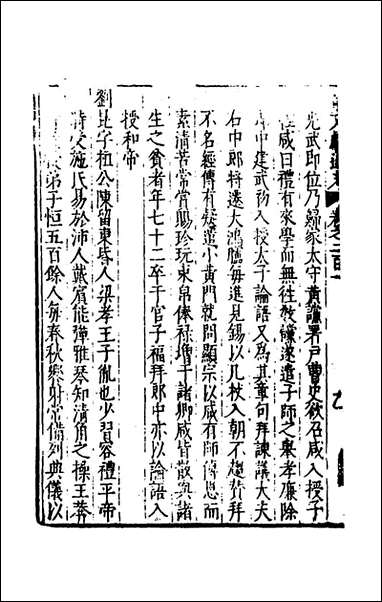 光武即位乃歸家太守黃讜署戶曹史欲召咸入授子
咸曰禮有來學而無往教讜遂遣子師之舉孝廉除
郎中建武初入授太子論語又為其章句拜諫議大夫
右中郎將遷大鴻臚每進見錫以几杖入朝不趨贊拜
不名經傳有疑遣小黃門就問顯宗以咸有師傅恩而
素清苦常賞賜珍玩束帛俸祿增于諸卿咸皆散與諸
生之貧者年七十二卒于官子福拜郎中亦以論語入
授和帝
劉昆字桓公陳留東昏人梁孝王子胤也少習容禮平帝
時受施氏易於沛人戴賓能彈雅琴知清角之操王莽
弟子恒五百餘人每春秋饗射常備列典儀以